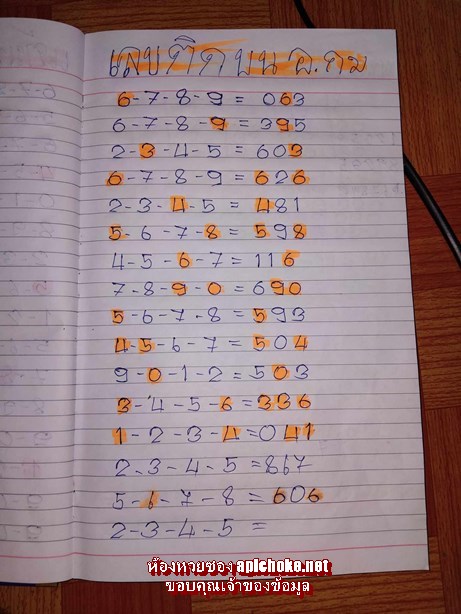 เลขติดบน อ.กบ
6-7-8-9 = 063
6-7-8-9 = 395
2-3-4-5 = 603
6-7-8-9 = 626
2-3-4-5 = 481
5-6-7-8 = 598
4-5-6-7 = 116
7-8-9-0 = 690
5-6-7-8 = 593
4-5-6-7 = 504
9-0-1-2 = 503
3-4-5-6 = 336
1-2-3-4 = 041
2-3-4-5 = 867
5-6-7-8 = 606
2-3-4-5 =
ห้องหวยซอง apichoke.net
ขอบคุณเจ้าของข้อมูล